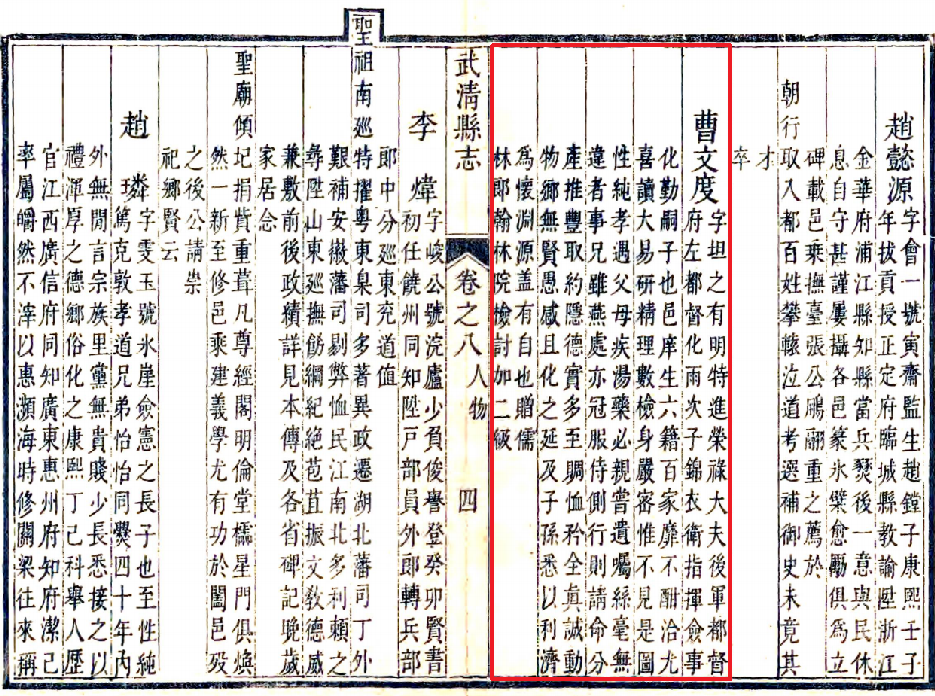 趙懿源 字會一號寅齋監生趙鏜子康熙壬子
年拔貢授正定府臨城縣教諭陞浙江
金華府浦江縣知縣當兵燹後一意與民休
息自守甚謹屢攝各邑篆氷櫱愈勵俱為立
碑載邑乘撫臺張公鵬翮重之薦於
朝行取入都百姓攀轅泣道考選補御史未竟其
才
卒
曹文度 字坦之有明特進榮祿大夫後軍都督
府左都督化雨次子錦衣衛指揮僉事
化勤嗣子也邑庠生六籍百家靡不酣洽尤
喜讀大易研精理數檢身嚴密惟不見是圖
性純孝遇父母疾湯藥必親嘗遺囑絲毫無
違者事兄雖燕處亦冠服侍側行則請命分
產推豐取約隱德實多至賙恤矜全真誠動
物鄉無賢愚感且化之延及子孫悉以利濟
為懷淵源蓋有自也贈儒
林郎翰林院檢討加二級
武清縣志 卷之八 人物 四
李煒 字峻公號浣廬少負俊譽登癸卯賢書
初任饒州同知陞戶部員外郎轉兵部
郎中分廵東兖道值
聖祖南廵特擢粵東臬司多著異政遷湖北藩司丁外
艱補安徽藩司剔弊恤民江南北多利賴之
尋陞山東廵撫飭綱紀絶苞苴振文教德威
兼敷前後政績詳見本傳及各省碑記晚歲
家居念
聖廟傾圮捐貲重葺凡尊經閣明倫堂櫺星門俱煥
然一新至修邑乘建義學尤有功於闔邑歿
之後公請崇
祀鄉賢云
趙璘 字雯玉號氷崖僉憲之長子也至性純
篤克敦孝道兄弟怡怡同爨四十年內
外無閒言宗族里黨無貴賤少長悉接之以
禮渾厚之德鄉俗化之康熙丁己科舉人歷
官江西廣信府同知廣東惠州府知府潔己
率屬皭然不滓以惠瀕海時修關梁往來稱